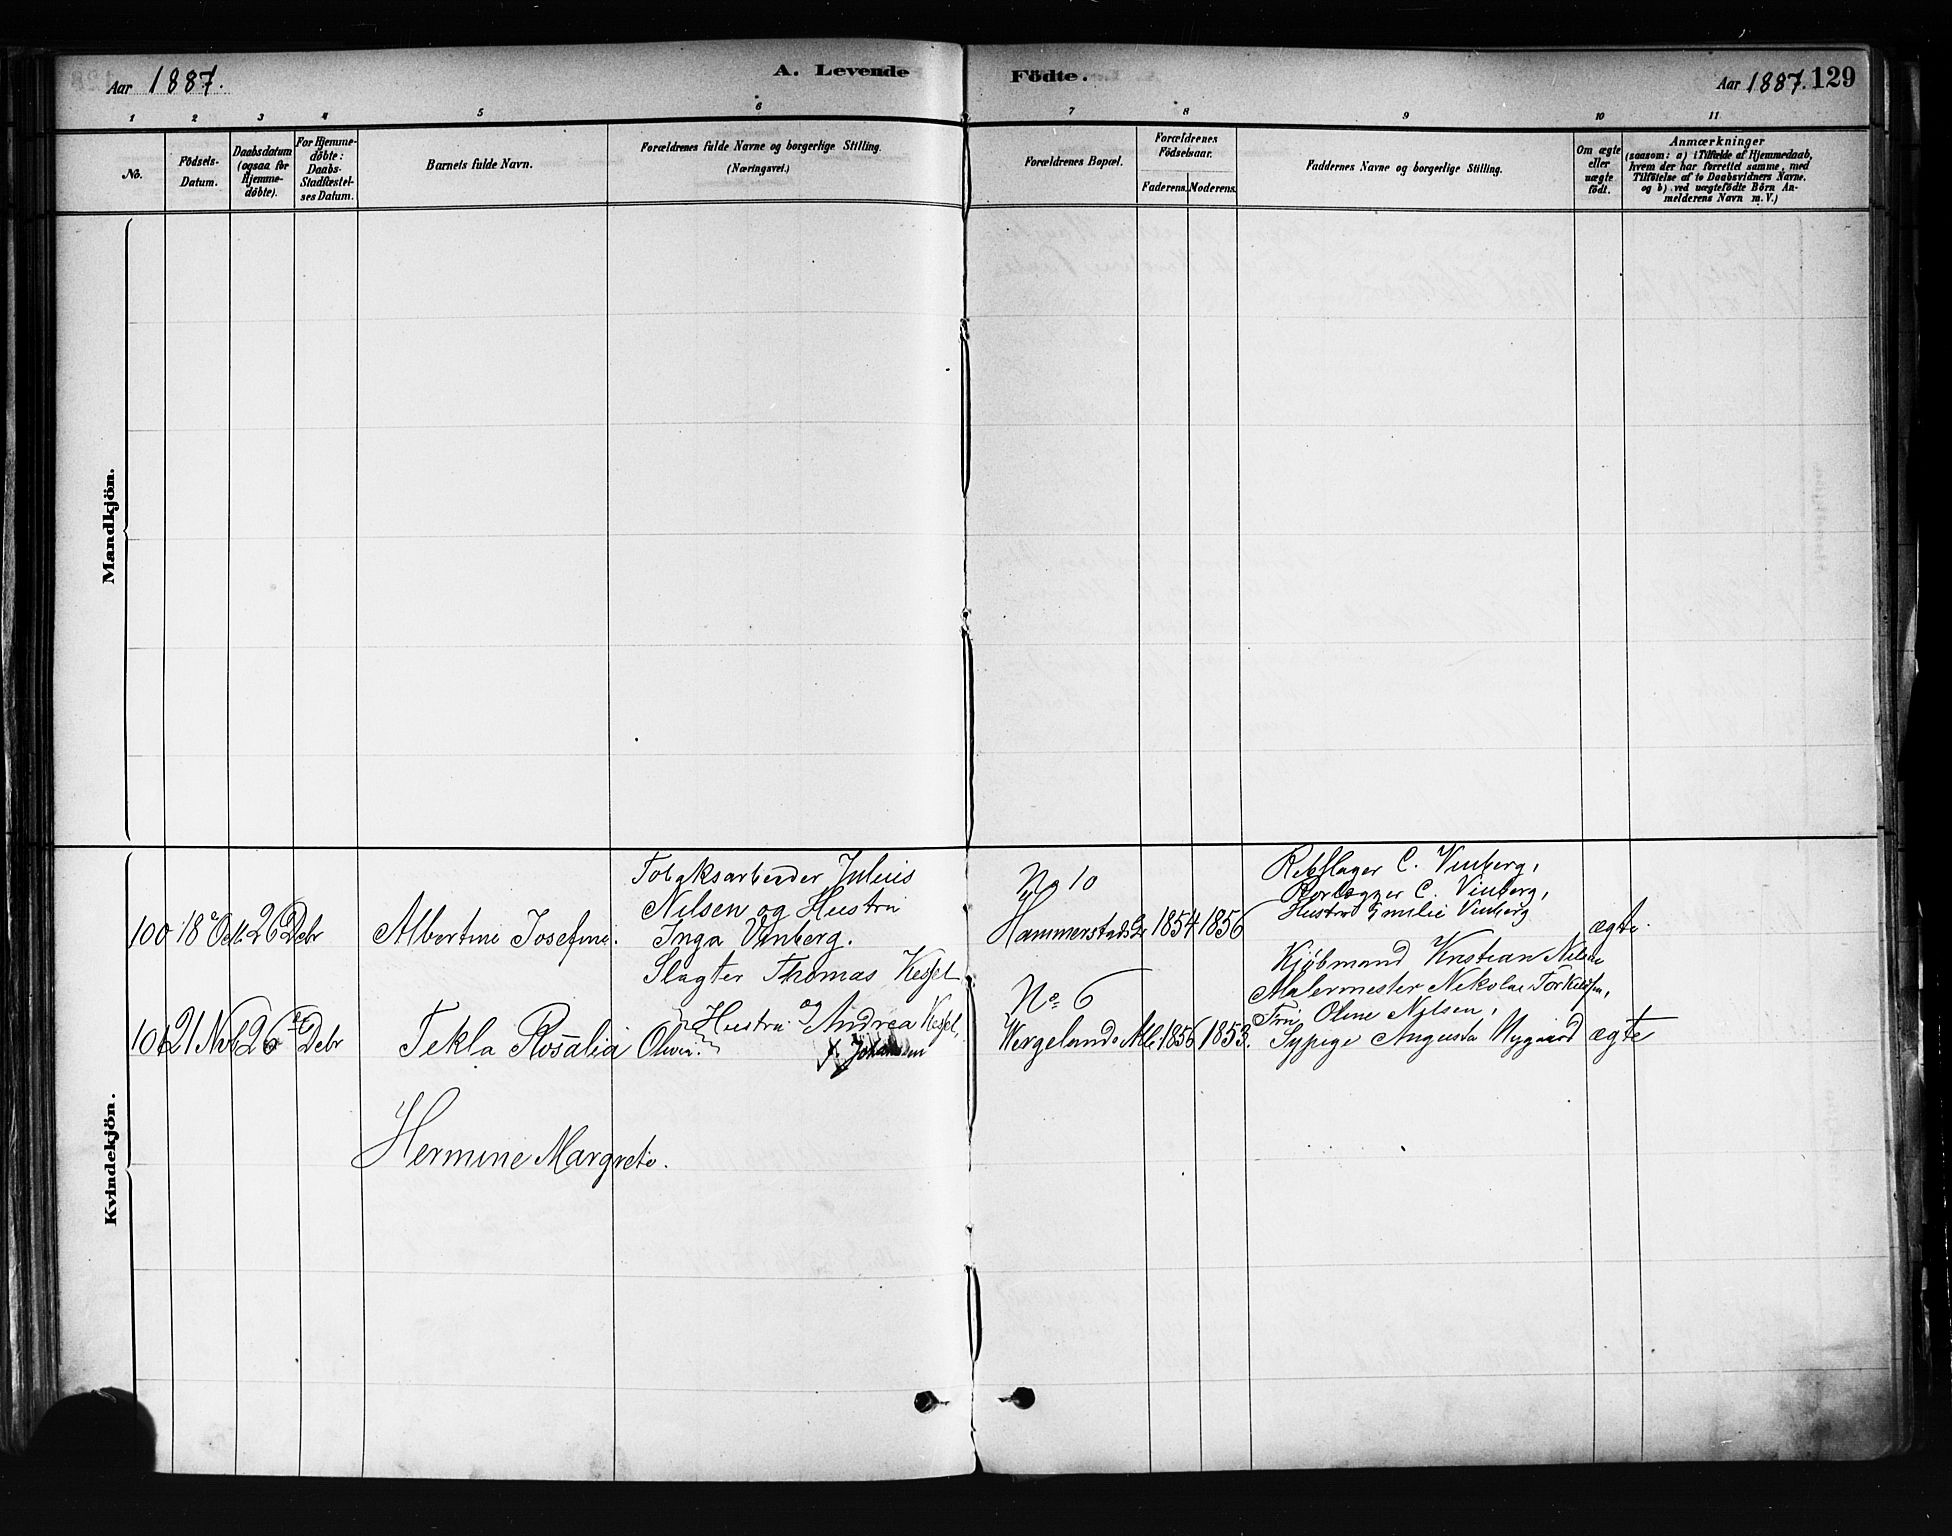 Aar 1887.
A. Levende
Födte.
Aar 1887. 129
1 2 3 4 5 6 7 8 9 10 11
No.
Födsels-
Datum.
Daabsdatum
(ogsaa for
Hjemme-
döbte).
For Hjemme-
döbte:
Daabs-
Stadfæstel-
ses Datum.
Barnets fulde Navn.
Forældrenes fulde Navne og borgerlige Stilling.
(Næringsvei.)
Forældrenes Bopæl.
Forældrenes
Födselsaar.
Faderens. Moderens.
Faddernes Navne og borgerlige Stilling.
Om ægte
eller
uægte
födt.
Anmærkninger
(saasom: a) i Tilfælde af Hjemmedaab,
hvem der har forrettet samme, med
Tilföielse af to Daabsvidners Navne.
og b) ved uægtefödte Börn An-
melderens Navn m. V.)
Mandkjön.
Kvindekjön.
100 18 Oct. 26 Debr
Albertine Josefine.
Tobaksarbeider Julius
Nilsen og Hustru
Inga Vinberg.
No 10
Hammerstadsg 1854 1856
Rebslager C. Vinberg,
C. Vinberg,
Hustru Emilie Vinberg
ægte.
21 Nov 26 Debr
Tekla Rosalia
Slagter Thomas Kessel
og
Hustru Andrea Kessel,
Johansen
No 6
Wergelands Al: 1856 1853.
Kjöbmand Kristian Nilsen
Malermester Nikolai Torkilsen,
Fru Oline Nilsen,
Sypige Augusta Nygaard ægte
Hermine Margrete.